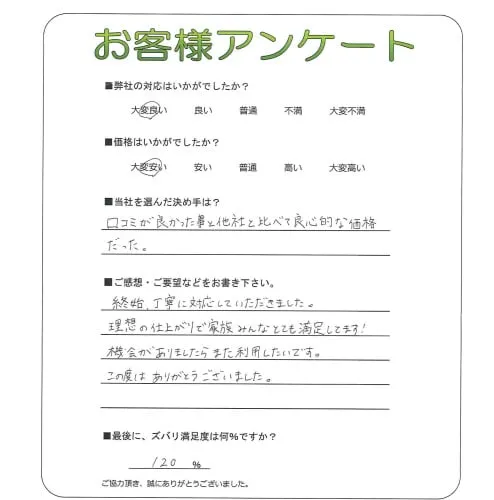 お客様アンケート
■弊社の対応はいかがでしたか？
大変良い 良い 普通 不満 大変不満
■価格はいかがでしたか？
大変安い 安い 普通 高い 大変高い
■当社を選んだ決め手は？
口コミが良かった事と他社と比べて良心的な価格
だった。
■ご感想・ご要望などをお書き下さい。
終始、丁寧に対応していただきました。
理想の仕上がりで家族みんなとても満足してます！
機会がありましたらまた利用したいです。
この度は ありがとうございました。
■最後に、ズバリ満足度は何％ですか？
120 %
ご協力頂き、誠にありがとうございました。